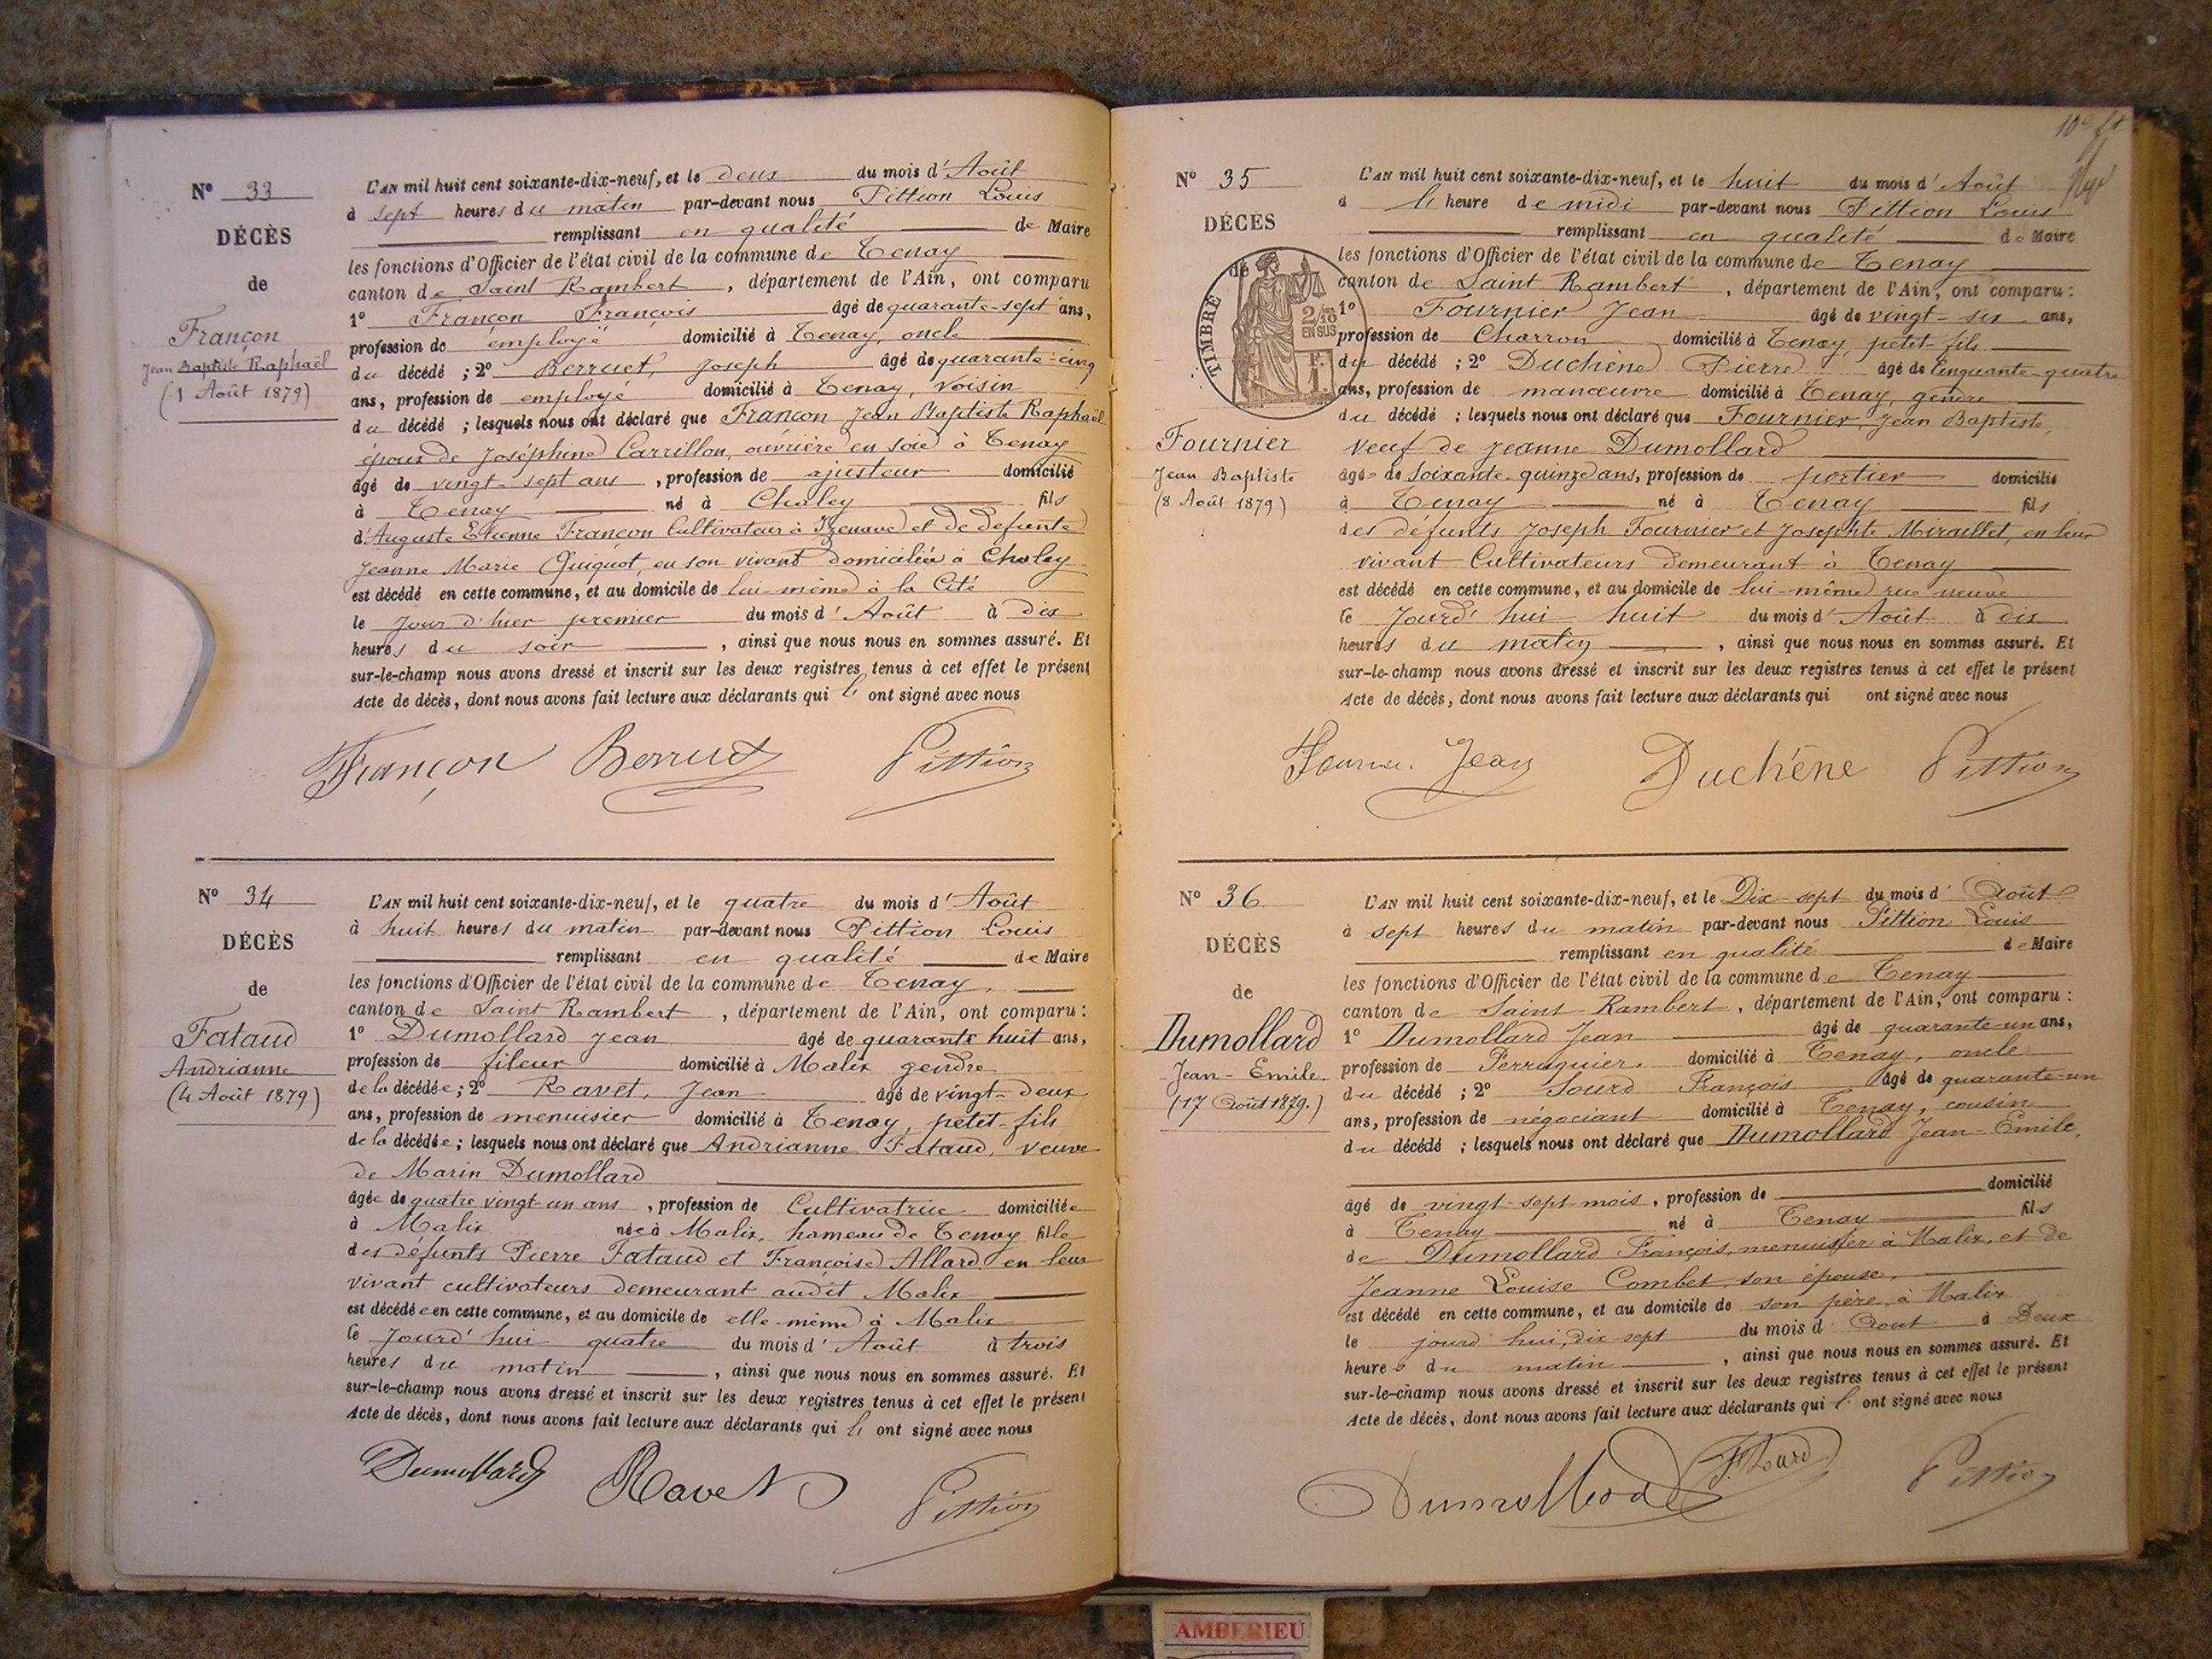 N° 33
DÉCÈS
de
Françon
Jean Baptiste Raphaël
(1 Août 1879)
L'AN mil huit cent soixante-dix-neuf, et le deux du mois d'Août
à sept heures du matin par-devant nous Pittion Louis
remplissant en qualité de Maire
les fonctions d'Officier de l'état civil de la commune de Tenay
canton de Saint Rambert, département de l'Ain, ont comparu
1° Françon François âgé de quarante-sept ans,
profession de employé domicilié à Tenay, oncle
du décédé ; 2° Berruet, Joseph âgé de quarante-cinq
ans, profession de employé domicilié à Tenay, voisin
du décédé ; lesquels nous ont déclaré que Françon Jean Baptiste Raphaël
époux de Joséphine Carrillon, ouvrière en soie à Tenay
âgé de vingt-sept ans, profession de ajusteur domicilié
à Tenay né à Chaley fils
d'Auguste Etienne Françon Cultivateur à Izenave et de defunte
Jeanne Marie Quiquot, en son vivant domiciliée à Chaley
est décédé en cette commune, et au domicile de lui-même à la Cité
le Jour d'hier premier du mois d'Août à dix
heures du soir, ainsi que nous nous en sommes assuré. Et
sur-le-champ nous avons dressé et inscrit sur les deux registres tenus à cet effet le présent
Acte de décès, dont nous avons fait lecture aux déclarants qui ont signé avec nous
Françon Berruet Pittion
N° 34
DÉCÈS
de
Fataud
Andrianne
(4 Août 1879)
L'AN mil huit cent soixante-dix-neuf, et le quatre du mois d'Août
à huit heures du matin par-devant nous Pittion Louis
remplissant en qualité de Maire
les fonctions d'Officier de l'état civil de la commune de Tenay,
canton de Saint Rambert, département de l'Ain, ont comparu :
1° Dumollard Jean âgé de quarante huit ans,
profession de fileur domicilié à Malix gendre
de la décédée ; 2° Ravet, Jean âgé de vingt-deux
ans, profession de menuisier domicilié à Tenay, petet-fils
de la décédée ; lesquels nous ont déclaré que Andrianne Fataud, veuve
de Marin Dumollard
âgée de quatre vingt-un ans, profession de Cultivatrice domiciliée
à Malix née à Malix, hameau de Tenay fille
des défunts Pierre Fataud et Françoise Allard en leur
vivant cultivateurs demeurant audit Malix
est décédée en cette commune, et au domicile de elle-même à Malix
le Jourd'hui quatre du mois d'Août à trois
heures du matin, ainsi que nous nous en sommes assuré. Et
sur-le-champ nous avons dressé et inscrit sur les deux registres tenus à cet effet le présent
Acte de décès, dont nous avons fait lecture aux déclarants qui ont signé avec nous
Dumollard Ravet Pittion
N° 35
DÉCÈS
de
TIMBRE
2/10 EN SUS
Fournier
Jean Baptiste
(8 Août 1879)
L'AN mil huit cent soixante-dix-neuf, et le huit du mois d'Août
à heure de midi par-devant nous Pittion Louis
remplissant en qualité de Maire
les fonctions d'Officier de l'état civil de la commune de Tenay
canton de Saint Rambert, département de l'Ain, ont comparu :
1° Fournier Jean âgé de vingt-six ans,
profession de Charron domicilié à Tenay, petit-fils
du décédé ; 2° Duchène Pierre âgé de Cinquante-quatre
ans, profession de manœuvre domicilié à Tenay, gendre
du décédé ; lesquels nous ont déclaré que Fournier, Jean Baptiste,
veuf de Jeanne Dumollard
âgé de soixante-quinze ans, profession de portier domicilié
à Tenay né à Tenay fils
des défunts Joseph Fournier et Josephte Miraillet, en leur
vivant Cultivateurs demeurant à Tenay
est décédé en cette commune, et au domicile de lui-même rue neuve
le Jourd'hui huit du mois d'Août à dix
heures du matin, ainsi que nous nous en sommes assuré. Et
sur-le-champ nous avons dressé et inscrit sur les deux registres tenus à cet effet le présent
Acte de décès, dont nous avons fait lecture aux déclarants qui ont signé avec nous
Jean Duchêne Pittion
N° 36
DÉCÈS
de
Dumollard
Jean-Emile
(17 Août 1879.)
L'AN mil huit cent soixante-dix-neuf, et le Dix-sept du mois d'Août
à sept heures du matin par-devant nous Pittion Louis
remplissant en qualité de Maire
les fonctions d'Officier de l'état civil de la commune de Tenay
canton de Saint-Rambert, département de l'Ain, ont comparu :
1° Dumollard Jean âgé de quarante-un ans,
profession de Perruquier domicilié à Tenay, oncle
du décédé ; 2° Sourd François âgé de quarante-un
ans, profession de négociant domicilié à Tenay, cousin
du décédé ; lesquels nous ont déclaré que Dumollard Jean-Emile,
âgé de vingt-sept mois, profession de domicilié
à Tenay né à Tenay fils
de Dumollard François, menuisier à Malix, et de
Jeanne Louise Combet, son épouse,
est décédé en cette commune, et au domicile de son père à Malix
le jourd'hui, dix-sept du mois d'Août à Deux
heures du matin, ainsi que nous nous en sommes assuré. Et
sur-le-champ nous avons dressé et inscrit sur les deux registres tenus à cet effet le présent
Acte de décès, dont nous avons fait lecture aux déclarants qui ont signé avec nous
Dumollard F. Sourd Pittion
AMBERIEU